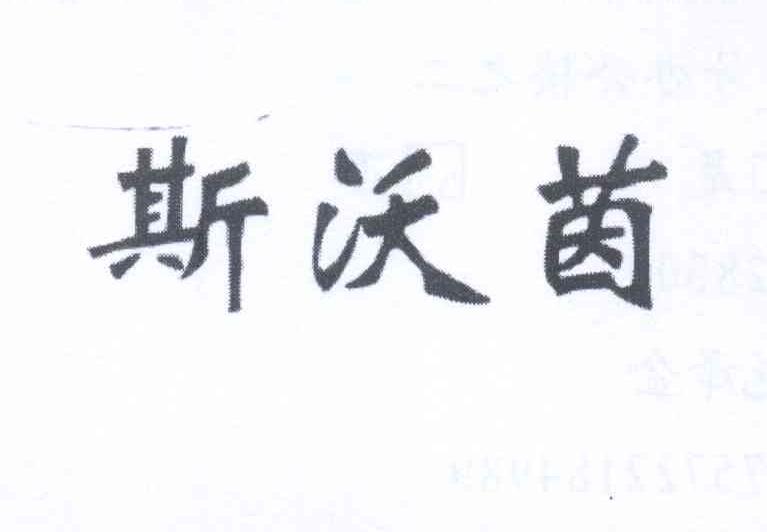 斯沃茵